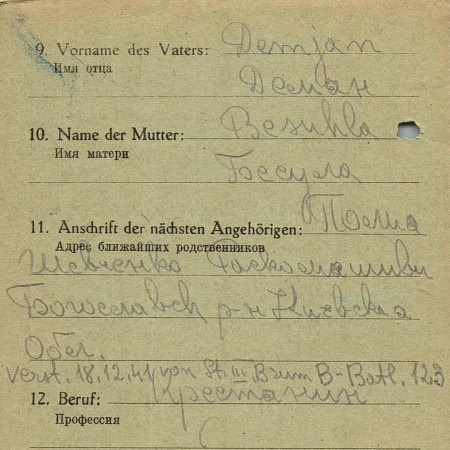 9. Vorname des Vaters: Demjan
Имя отца
Демян
10. Name der Mutter: Besuhla
Имя матери
Безугла
11. Anschrift der nächsten Angehörigen:
Адрес ближайших родственников
Шевченко
Богославск р-н Киевская
Обл.
verst. 18.12.41 von St. III B zum B-Batl. 123
12. Beruf: крестянин
Профессия